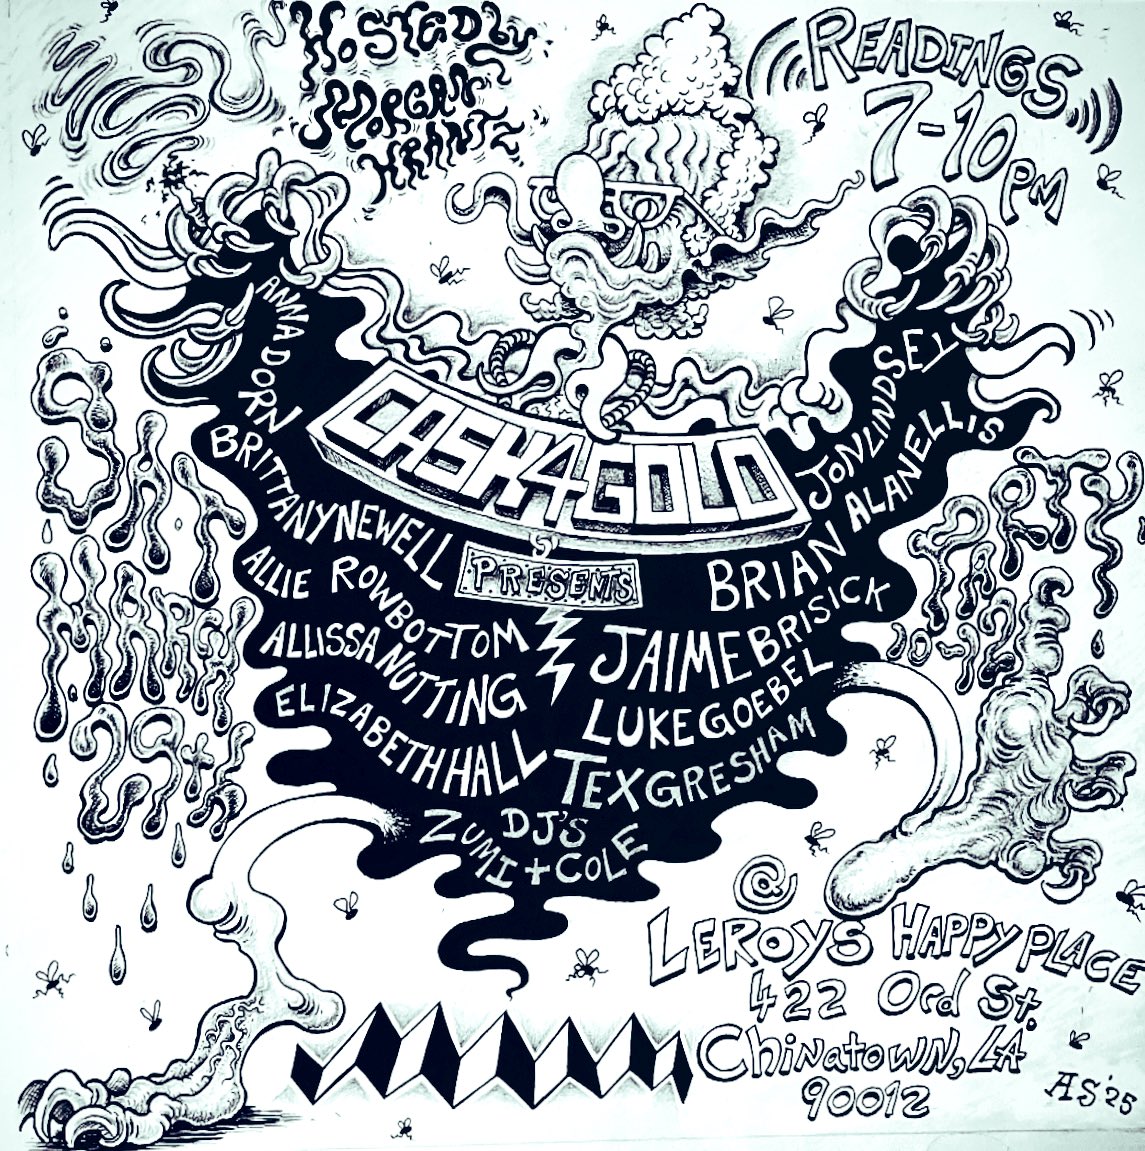 HOSTED by
MORGAN
KRANTZ
READINGS
7-10PM
ANNA DORN
BRITTANY NEWELL
ALLIE ROWBOTTOM
ALLISSA NUTTING
ELIZABETH HALL
CASH4GOLD
PRESENTS
JON LINDSEY
BRIAN ALAN ELLIS
JAIME BRISICK
LUKE GOEBEL
TEX GRESHAM
DJ'S
ZUMI + COLE
SAT
MARCH
29th
PARTY
10-12
@
LEROYS HAPPY PLACE
422 Ord St.
Chinatown, LA
90012
AS '25